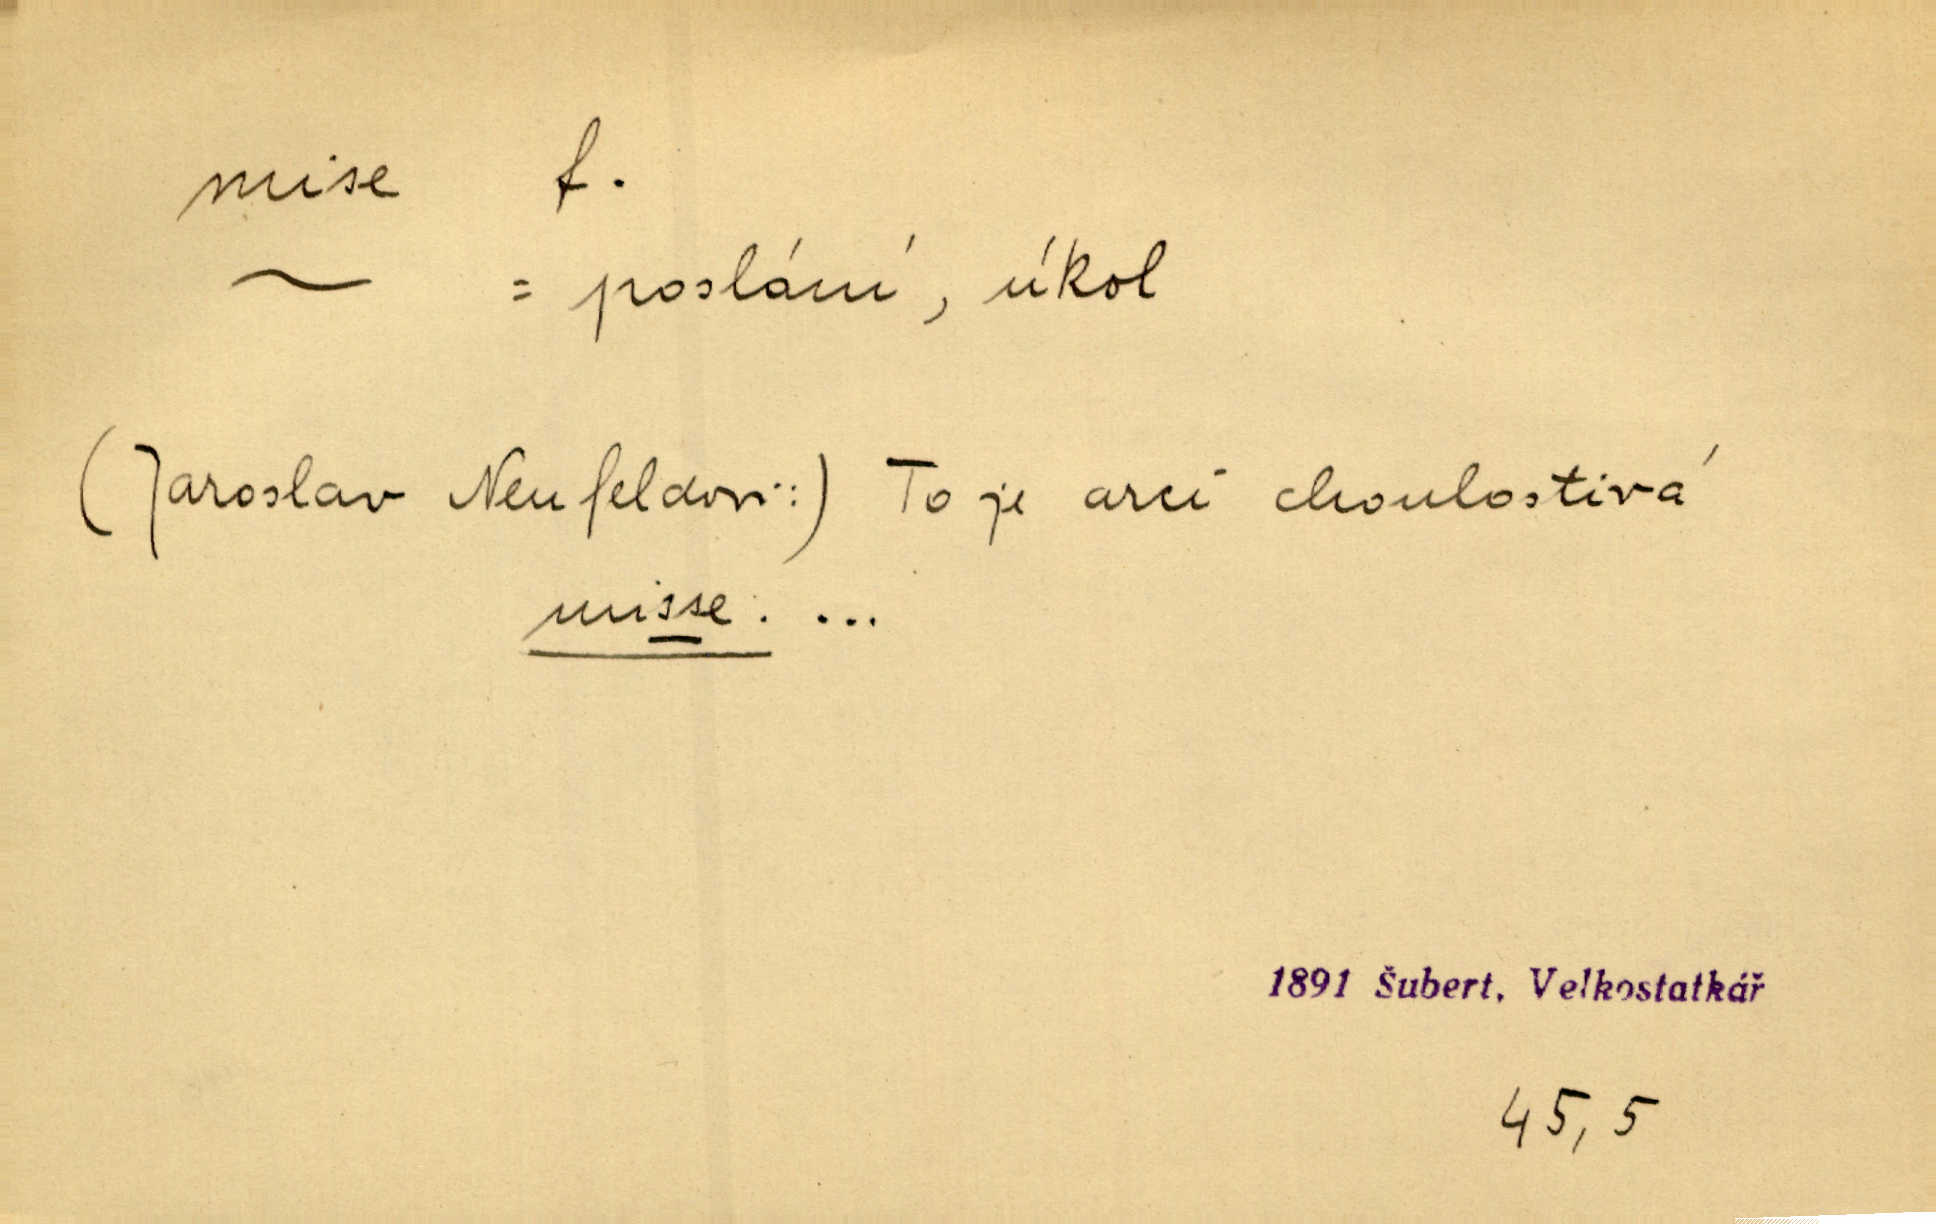 mise f.
~ = poslání, úkol
(Jaroslav Neufeldovi:) To je arci choulostivá
misse. ...
1891 Šubert, Velkostatkář
45,5